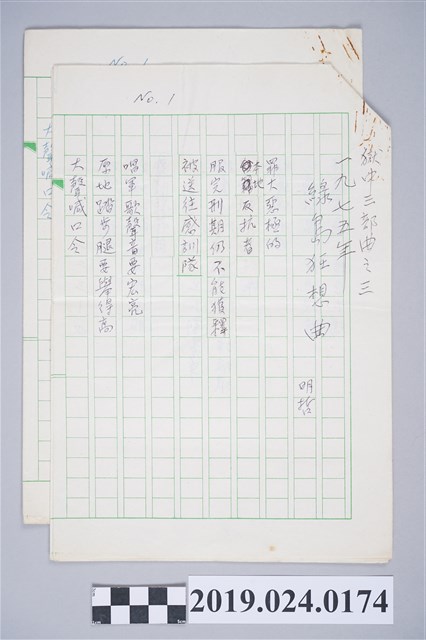 No. 1
獄中三部曲之三
一九七五年
綠島狂想曲
明哲
罪大惡極的
本地反抗者
服完刑期仍不能獲釋
被送往感訓隊
唱軍歌聲音要宏亮
原地踏步腿要舉得高
大聲喊口令
No. 1
大聲喊口令
2019.024.0174